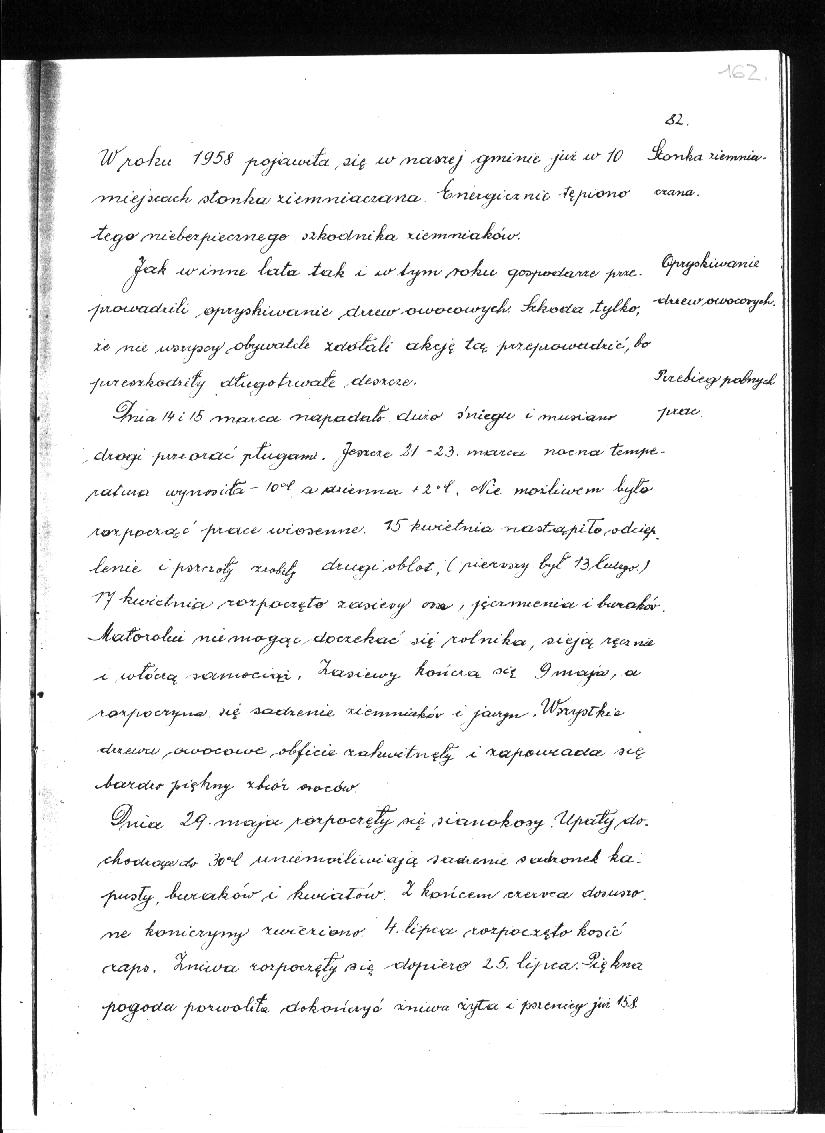 162.
82.
W roku 1958 pojawiła się w naszej gminie już w 10
Stonka ziemnia-
miejscach stonka ziemniaczana. Energicznie tępiono
czana.
tego niebezpiecznego szkodnika ziemniaków.
Jak w inne lata tak i w tym roku gospodarze prze-
Opryskiwanie
prowadzili opryskiwanie drzew owocowych. Szkoda tylko,
drzew owocowych.
że nie wszyscy obywatele zdołali akcję tą przeprowadzić, bo
przeszkodziły długotrwałe deszcze.
Przebieg polnych
Dnia 14 i 15 marca napadało dużo śniegu i musiano
prac.
drogi przeorać pługami. Jeszcze 21-23. marca nocna tempe-
ratura wynosiła -10°C a dzienna +2°C. Nie możliwem było
rozpocząć prace wiosenne. 15 kwietnia nastąpiło ociep-
lenie i pszczoły zrobiły drugi oblot, (pierwszy był 13 lutego.)
17 kwietnia rozpoczęto zasiewy owsa, jęczmienia i buraków.
Małorolni nie mogąc doczekać się rolnika, sieją ręcznie
i włóczą samociągi. Zasiewy kończą się 9 maja, a
rozpoczyna się sadzenie ziemniaków i jarzyn. Wszystkie
drzewa owocowe obficie zakwitnęły i zapowiada się
bardzo piękny zbiór owoców.
Dnia 29. maja rozpoczęły się sianokosy. Upały do-
chodzące do 30°C uniemożliwiają sadzenie sadzonek ka-
pusty, buraków i kwiatów. Z końcem czerwca dosuszo-
ne koniczyny zwieziono 4. lipca rozpoczęto kosić
rzepś. Żniwa rozpoczęły się dopiero 25. lipca. Piękna
pogoda pozwoliła dokończyć żniwa żyta i pszenicy już 15.8.